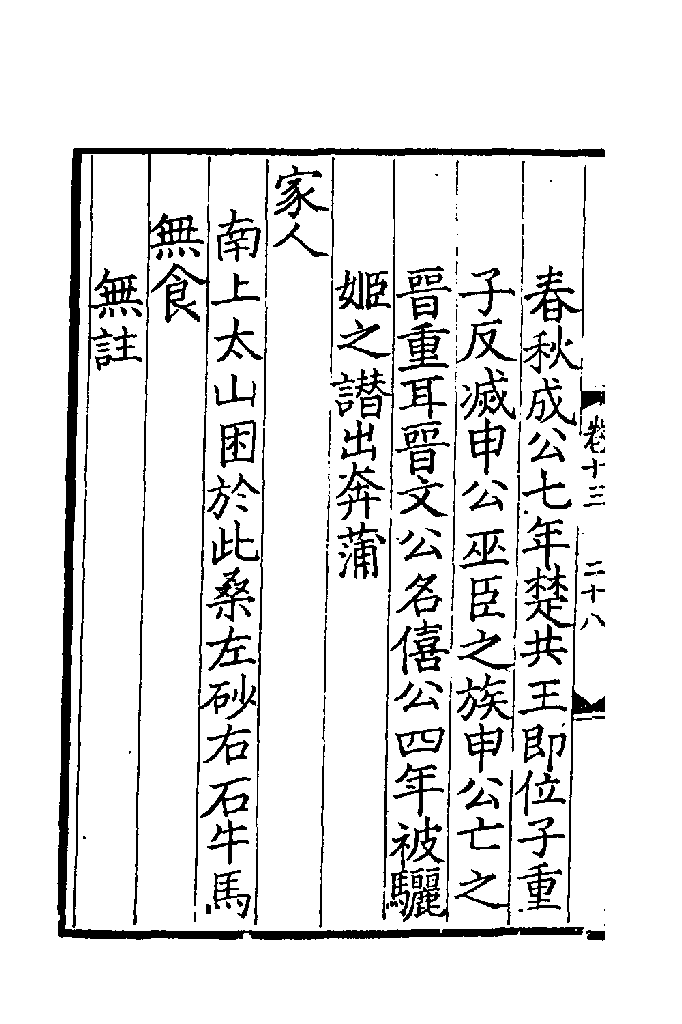 春秋成公七年楚共王即位子重
子反滅申公巫臣之族申公亡之
晉重耳晉文公名僖公四年被驪
姬之譖出奔蒲
家人
南上太山困於此桑左砂右石牛馬
無食
無註
卷十三 二十八